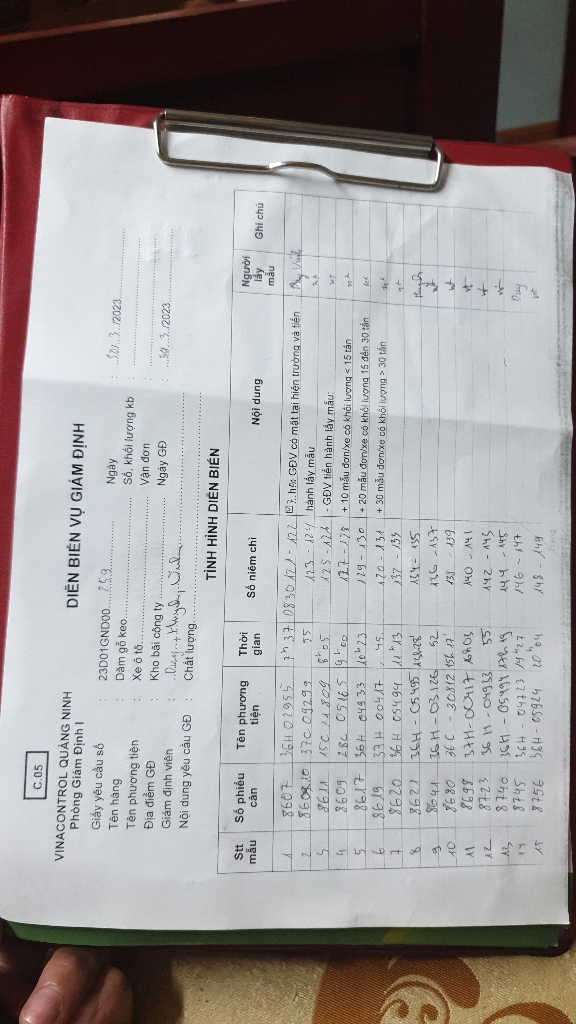 C.05
VINACONTROL QUẢNG NINH
Phòng Giám Định I
DIỄN BIẾN VỤ GIÁM ĐỊNH
Giấy yêu cầu số : 23D01GND00 259 Ngày : 3/2023
Tên hàng : Dăm gỗ keo Số, khối lượng kb :
Tên phương tiện : Xe ô tô Vận đơn :
Địa điểm GĐ : Kho bãi công ty Ngày GĐ : 3/2023
Giám định viên :
Nội dung yêu cầu GĐ : Chất lượng
TÌNH HÌNH DIỄN BIẾN
Stt mẫu Số phiếu cân Tên phương tiện Thời gian Số niêm chì Nội dung Người lấy mẫu Ghi chú
1 8607 36H 02955 7h37 0830 121 - 122 GĐV có mặt tại hiện trường và tiến
2 37C 09299 55 123 - 124 hành lấy mẫu
3 8611 15C 11809 8h05 125 - 126 - GĐV tiến hành lấy mẫu:
4 8609 28C 05165 9h00 127 - 128 + 10 mẫu đơn/xe có khối lượng < 15 tấn
5 8617 36H 04933 10h23 129 - 130 + 20 mẫu đơn/xe có khối lượng 15 đến 30 tấn
6 8619 37H 00417 45 131 + 30 mẫu đơn/xe có khối lượng > 30 tấn
7 8620 36H 05494 11h13 132 - 133
8 8621 36H - 05495 134 - 135 Huỳnh
9 8641 36H - 03126 52 136 - 137
10 8680 36C - 30812 15h17 138 - 139
11 8698 37H - 00417 16h03 140 - 141
12 8723 36H - 04933 55 142 - 143
13 8740 36H - 05494 17h49 144 - 145
14 8745 36H - 04723 19h27 146 - 147 Duy
15 8756 36H - 05924 20h04 148 - 149